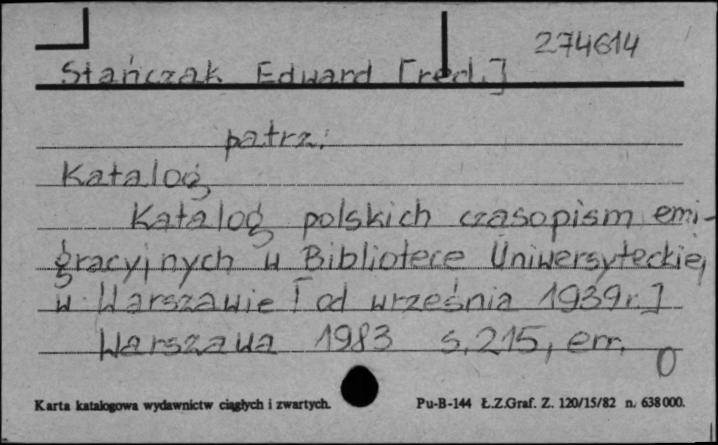 274614
Stańczak Edward [red.]
patrz:
Katalog
Katalog polskich czasopism emi-
gracyjnych w Bibliotece Uniwersyteckiej
w Warszawie [od września 1939r.]
Warszawa 1983 s. 215, err.
0
Karta katalogowa wydawnictw ciągłych i zwartych.
Pu-B-144 Ł.Z.Graf. Z. 120/15/82 n. 638000.